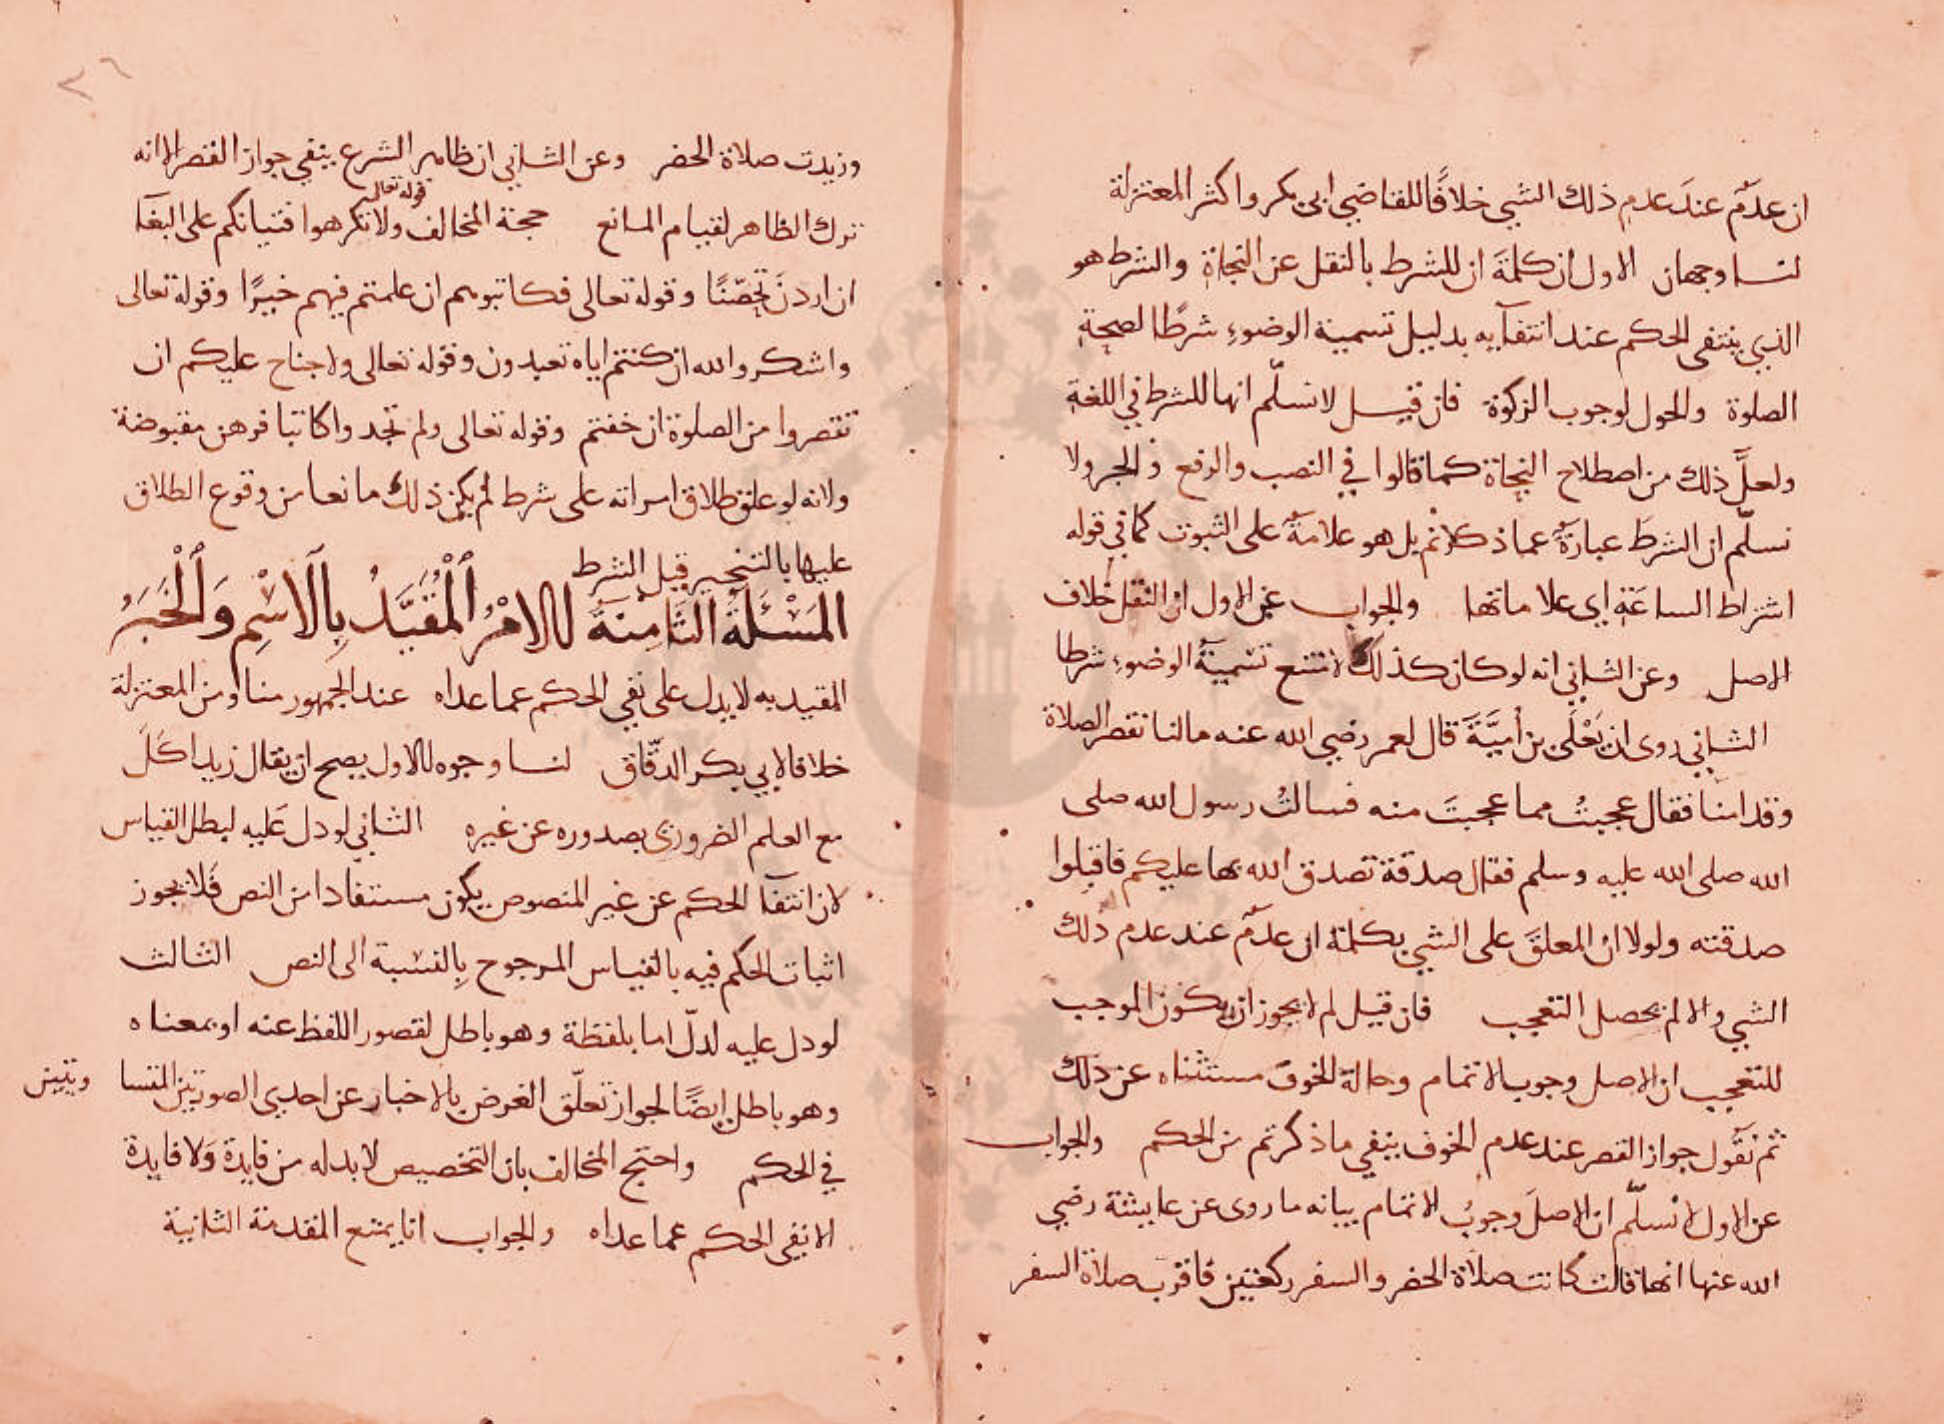 ان عدمٌ عندَ عدمِ ذلك الشي خلافًا للقاضي ابي بكر واكثر المعتزلة
لنا وجهان الاول ان كلمةَ ان للشرط بالنقل عن النحاة والشرط هو
الذي ينتفي الحكم عند انتفآيه بدليل تسمية الوضوءِ شرطًا لصحة
الصلوة والحول لوجوب الزكوة فان قيل لا نسلّم انها للشرط في اللغة
ولعلَّ ذلك من اصطلاح النحاة كما قالوا في النصب والرفع والجر ولا
نسلّم ان الشرطَ عبارةٌ عما ذكرتم بل هو علامةٌ على الثبوت كما في قوله
اشراط الساعَةِ اي علاماتها والجواب عن الاول ان النقل خلاف
الاصل وعن الثاني انه لو كان كذلك لامتنع تسميةُ الوضوءِ شرطا
الثاني روى ان يَعْلَى بن أميَّةَ قال لعمر رضي الله عنه مالنا نقصر الصلاة
وقد امنا فقال عجبتُ مما عجبتَ منه فسالتُ رسول الله صلى
الله صلى الله عليه وسلم فقال صدقة تصدق الله بها عليكم فاقبلوا
صدقته ولولا ان المعلقَ على الشي بكلمة ان عدمٌ عند عدم ذلك
الشي والا لم يحصل التعجب فان قيل لم لا يجوز ان يكون الموجب
للتعجب ان الاصل وجوب الاتمام وحالة الخوف مستثناه عن ذلك
ثم نقُول جواز القصر عند عدم الخوف ينفي ما ذكرتم من الحكم والجواب
عن الاول لا نسلّم ان الاصلَ وجوبُ الاتمام بيانه ما روى عن عايشة رضي
الله عنها انها قالت كانت صلاة الحضر والسفر ركعتين فاقرت صلاة السفر
وزيدت صلاة الحضر وعن الثاني ان ظاهر الشرع ينفي جواز القصر الا انه
ترك الظاهر لقيام المانع حجة المخالف قوله تعالى ولا تكرهوا فتياتكم على البغآ
ان اردنَ تحصّنًا وقوله تعالى فكاتبوهم ان علمتم فيهم خيرًا وقوله تعالى
واشكروا الله ان كنتم اياه تعبدون وقوله تعالى ولا جناح عليكم ان
تقصروا من الصلوة ان خفتم وقوله تعالى ولم تجدوا كاتبا فرهن مقبوضة
ولانه لو علق طلاق امراته على شرط لم يكن ذلك مانعا من وقوع الطلاق
عليها بالتنجيز قبل الشرط
المَسْئَلَةُ الثَّامِنَةُ الامْرُ ٱلْمُقَيَّدُ بِٱلْاسْمِ وَٱلْخَبَرُ
المقيد به لا يدل على نفي الحكم عما عداه عند الجمهور منا ومن المعتزلة
خلافا لابي بكر الدقّاق لنا وجوه الاول يصح ان يقال زيد اكَلَ
مع العلم الضروري بصدوره عن غيره الثاني لو دل عَليه لبطل القياس
لان انتفآ الحكم عن غير المنصوص يكون مستفادا من النص فَلا يجوز
اثبات الحكم فيه بالقياس المرجوح بِالنسْبة الى النص الثالث
لو دل عليه لدلّ اما بلفظة وهو باطل لقصور اللفظ عنه او بمعناه
وهو باطل ايضًا لجواز تعلّق الغرض بالاخبار عن احدى الصورتين المتسا ويتين
في الحكم واحتج المخالف بان التخصيص لا بد له من فايدة وَلا فايدة
الا نفى الحكم عما عداه والجواب انا يمنع المقدمة الثانية
٢٦